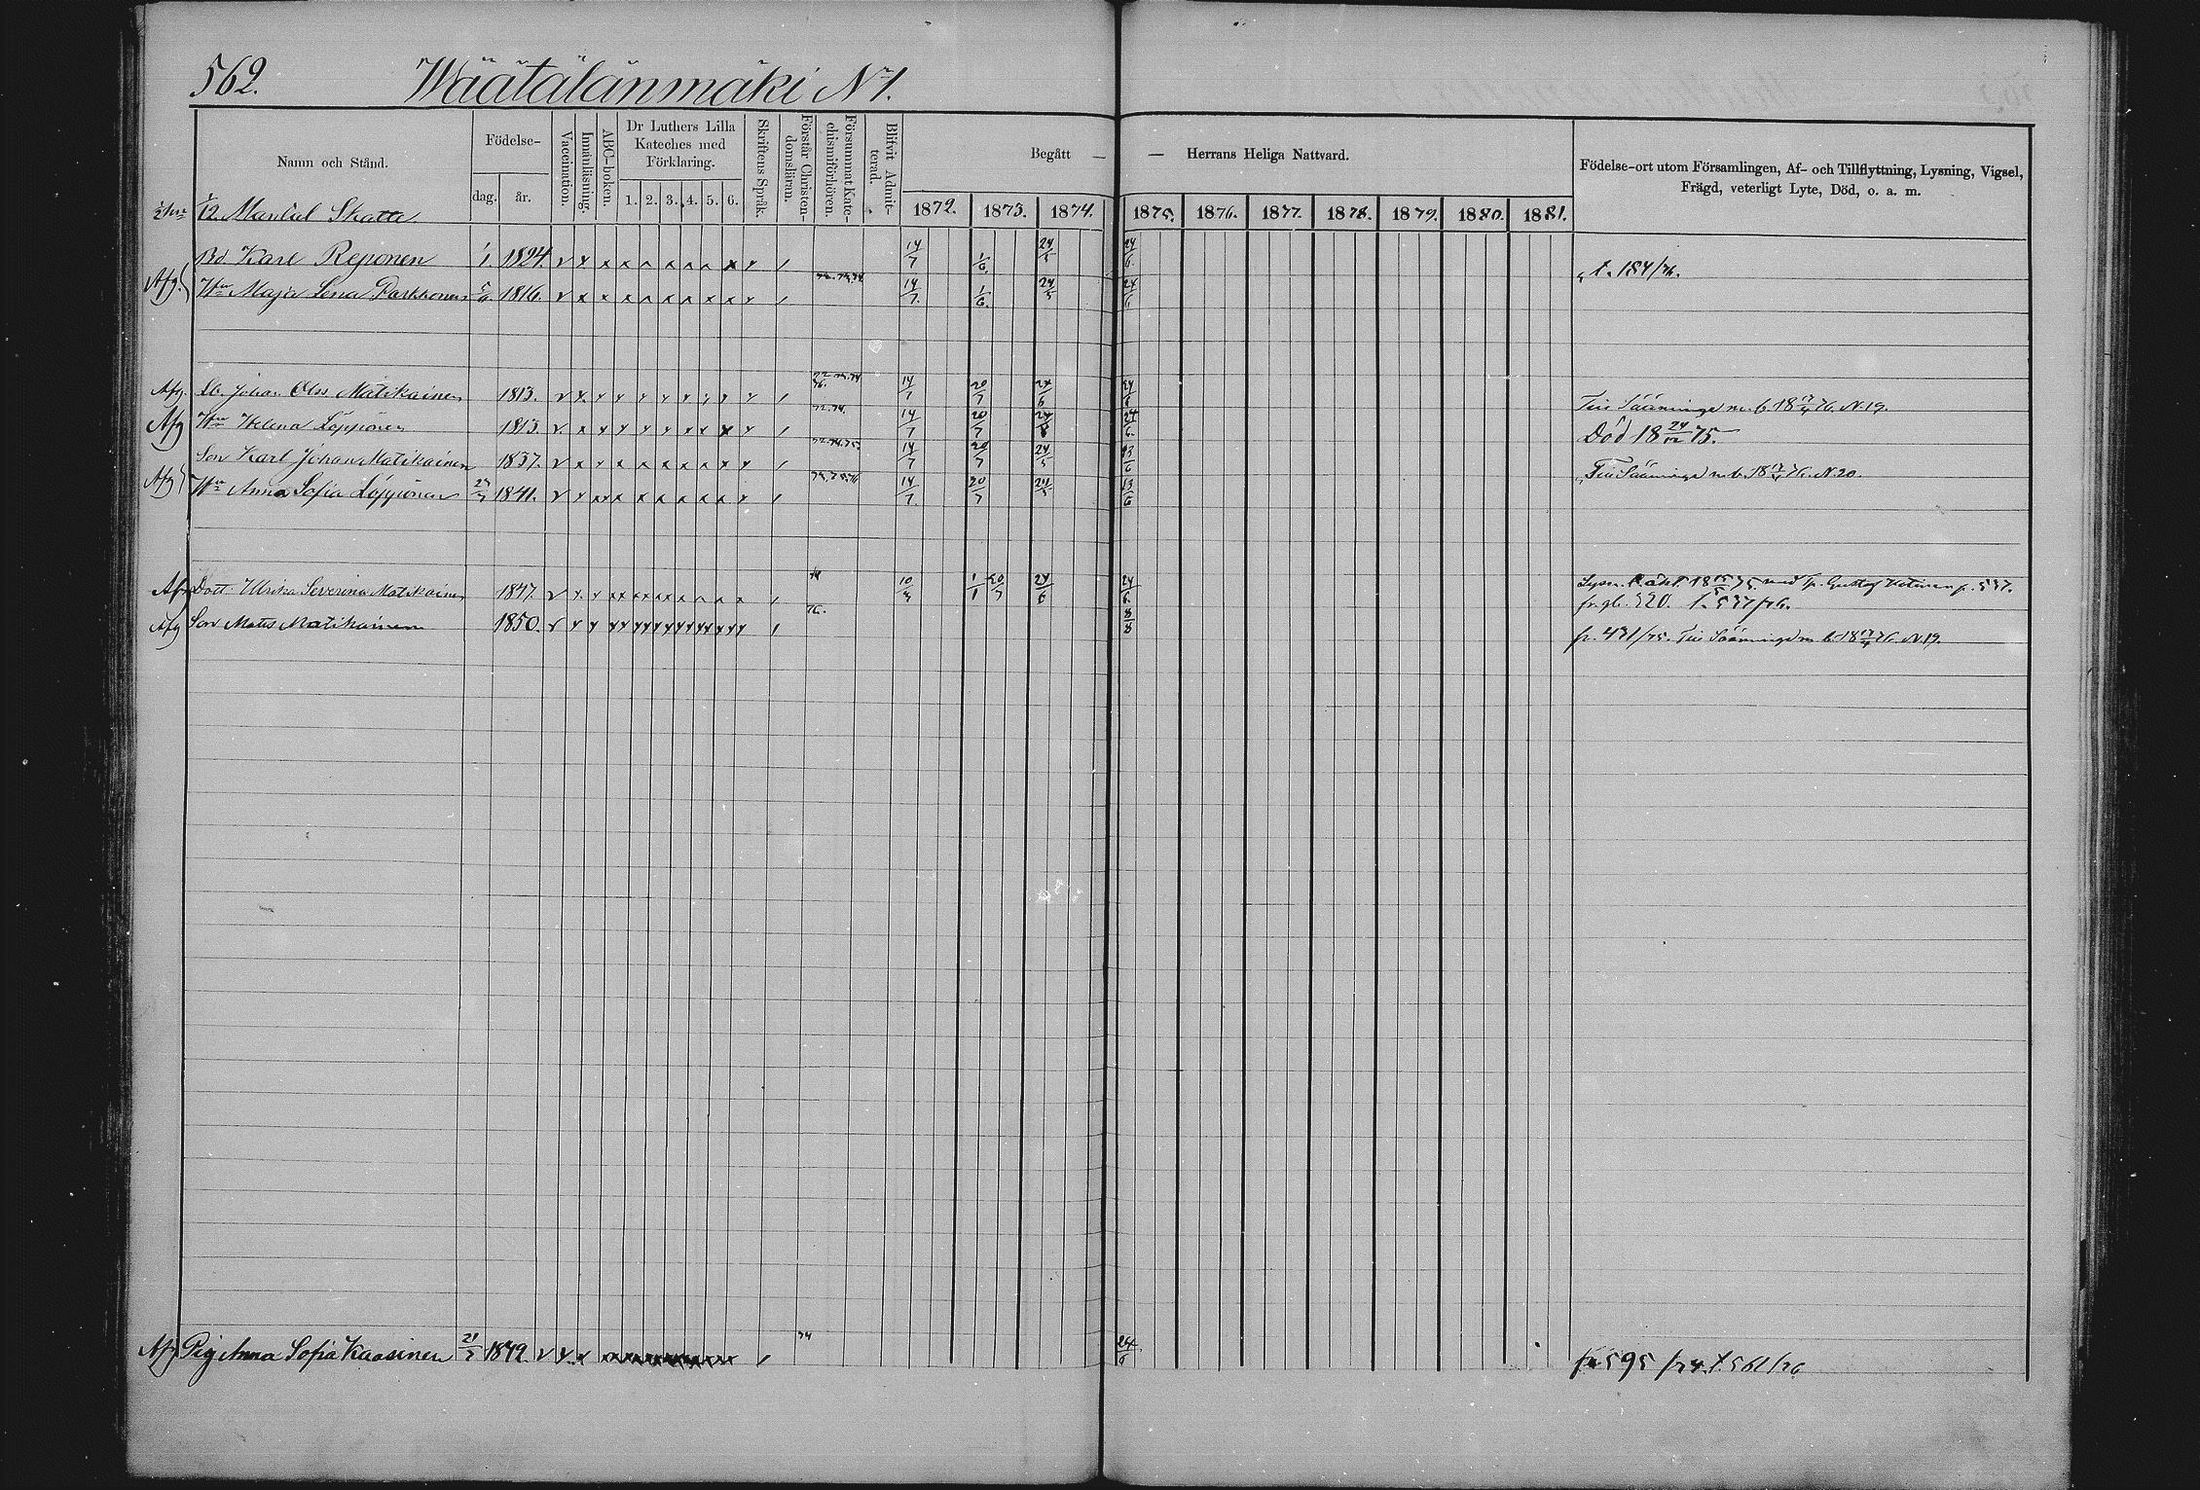 562. Wäätälänmäki No 1.
Namn och Stånd.
Födelse-
dag. år.
Vaccination.
Innanläsning.
ABC-boken.
Dr Luthers Lilla
Kateches med
Förklaring.
1. 2. 3. 4. 5. 6.
Skriftens Språk.
Förstår Christen-
domsläran.
Försummat Kate-
chismiförhören.
Blifvit Admit-
terad.
Begått — — Herrans Heliga Nattvard.
1872. 1873. 1874. 1875. 1876. 1877. 1878. 1879. 1880. 1881.
Födelse-ort utom Församlingen, Af- och Tillflyttning, Lysning, Vigsel,
Frägd, veterligt Lyte, Död, o. a. m.
1/12 Mantal Skatte
Bd Karl Reponen 1/1 1824. 14/7 1/6 24/5 24/6 t. 184/76.
Afg. Hu Maja Lena Parkkonen 5/6 1816. 72.73.74 14/7 1/6 24/5 24/6
Afg. Johan Olss Matikainen 1813. 14/7 20/7 24/6 24/6 Till Sääminge m. b. 18 76. N. 19.
Afg Hu Helena Löppönen 1813. 72.74. 14/7 20/7 24/6 Död 18 24/12 75.
Son Karl Johan Matikainen 1837. 72.74.75. 14/7 20/7 24/5 13/6 Till Sääminge m. b. 18 76. N. 20.
Afg Hu Anna Sofia Löppönen 1841. 14/7 20/7 24/5 13/6
Afg Dott. Ulrika Severina Matikainen 1847. 74 1/1 20/7 24/6 24/6 Lysn. t. äkt. 18 75 med Gustaf p. 537.
fr. gl. 520. t. 537/76.
Afg Son Mats Matikainen 1850. 76. 8/8 fr. 471/75. Till Sääminge m. b. 18 76. N. 19.
Afg Pig Anna Sofia Kaasinen 1849. 74 24/6 fr 595/74. t. 561/76